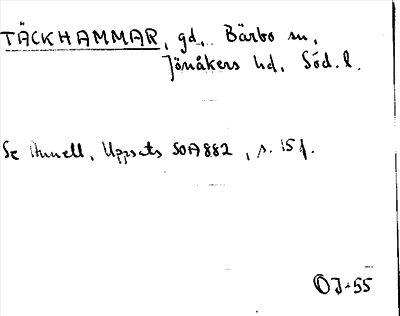 TÄCKHAMMAR, gd., Bärbo sn,
Jönåkers hd, Söd. l.
Se Hunell, Uppsats SOA 882, s. 15 f.
OJ-55